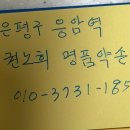 은평구 응암역
권노희 명품약손
010-3731-185